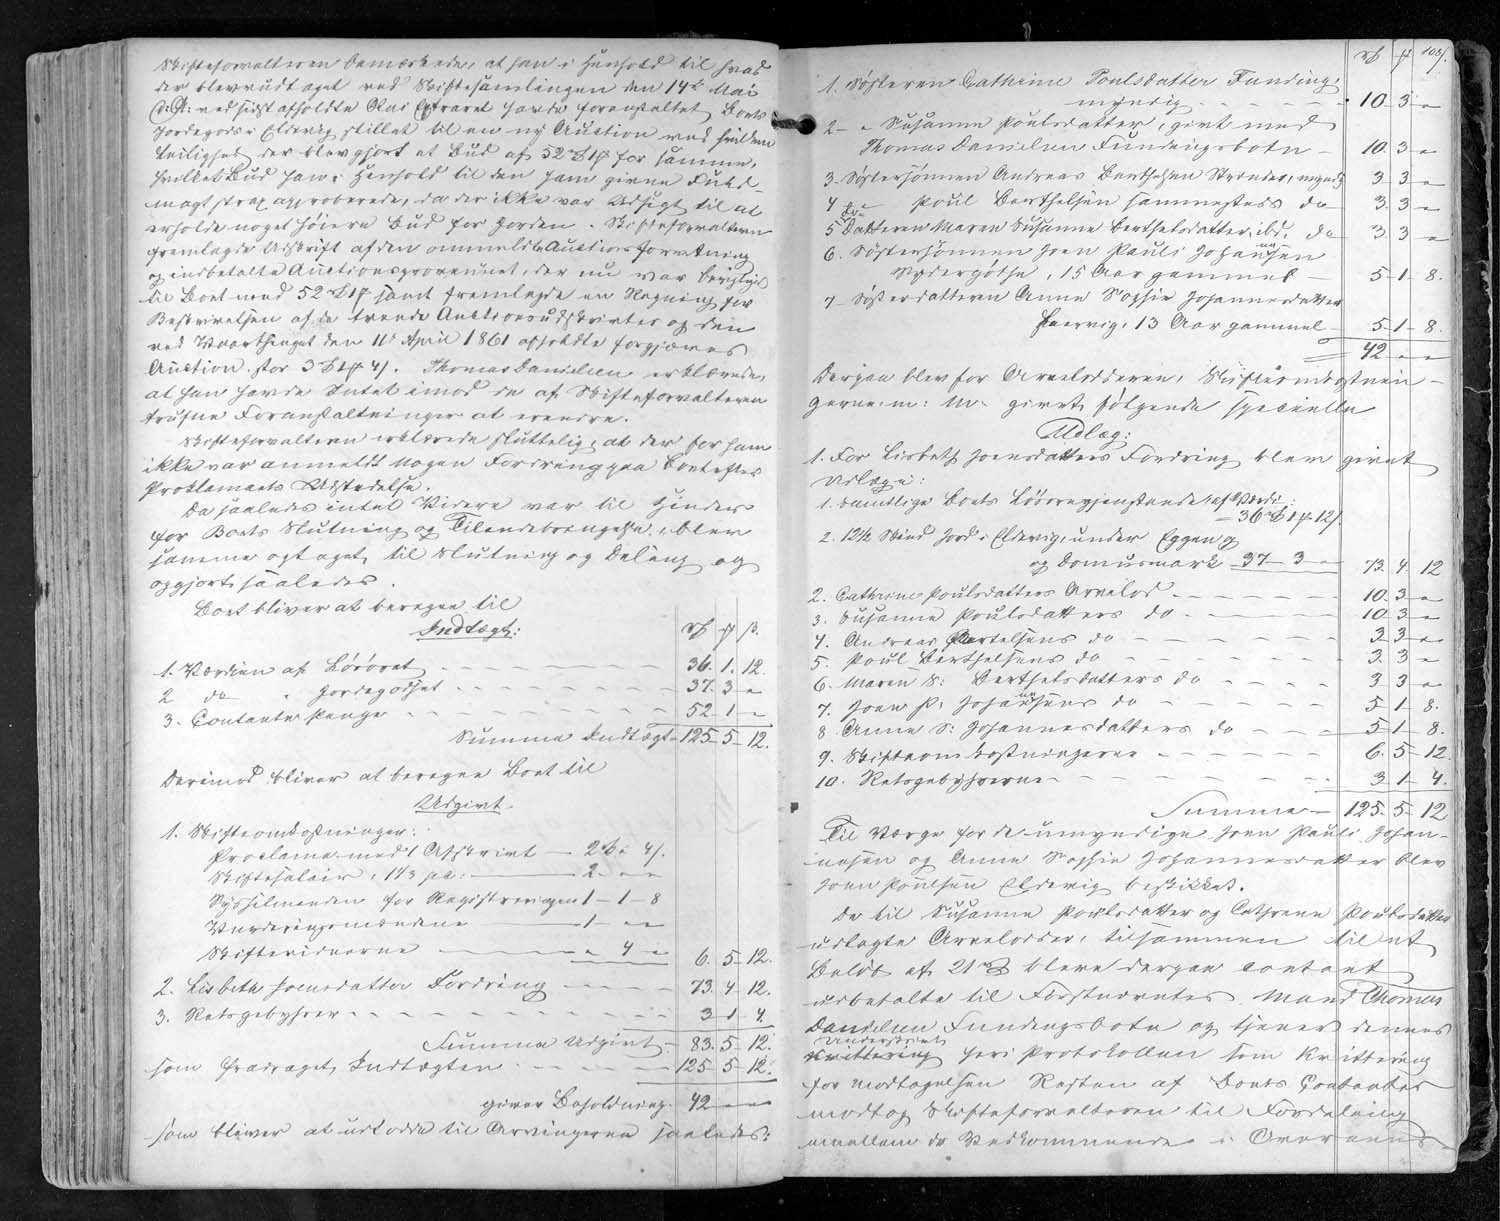 Skifteforvalteren bemærkede, at han i Henhold til hvad
der blev udtaget ved Skiftesamlingen den 14de Mai
d. A. ved sidst afholdte havde foranstaltet Boets
Jordegods i Eldevig stillet til en ny Auction ved hvilken
Leilighed der blev gjort et Bud af 52 Rd 1 # for samme,
hvilket Bud han i Henhold til den ham givne Fuld-
magt strax approberede, da der ikke var Udsigt til at
erholde noget høiere Bud for Jorden. Skifteforvalteren
fremlagde Udskrift af den ommeldte Auctionsforretning
og indbetalte Auctionsprovenuet, der nu var
til Boet med 52 Rd 1 # samt fremlagde en Regning for
Beskrivelsen af de tvende Auctionsudskrifter og den
ved Vaarthinget den 11te April 1861 afholdte forgjæves
Auction stor 3 Rd 1 # 4 s. Thomas Danielsen erklærede,
at han havde Intet imod de af Skifteforvalteren
trufne Foranstaltninger at erindre.
Skifteforvalteren erklærede sluttelig, at der for ham
ikke var anmeldt nogen Fordring paa Boet efter
Proklamaets Udstedelse.
Da saaledes intet Videre var til Hinder
for Boets Slutning og Tilendebringelse, blev
samme optaget til Slutning og Deling og
opgjort saaledes.
Boet bliver at beregne til
Indtægt: Rd # s.
1. Værdien af Løsøret 36. 1. 12.
2 do " Jordegodset 37. 3 "
3. Contante Penge 52 - 1 - "
Summa Indtægt 125 - 5 - 12.
Derimod bliver at beregne Boet til
Udgivt.
1. Skifteomkostninger:
Proclama med 1 Afskrivt - 2 Rd " 4 s.
Skiftesalair, 1 1/3 pc: 2 - " "
Sysselmanden for Registreringen 1 - 1 - 8
Vurderingsmændene 1 - " "
Skiftevidnerne " 4 " 6. 5 - 12.
2. Lisbeth Joensdatters Fordring 73. 4 - 12.
3. Retsgebyhrer 3 1 4.
Summa Udgivt - 83. 5 - 12.
som fradraget Indtægten 125 5 12.
giver Beholdning 42 " "
som bliver at udlodde til Arvingerne saaledes:
Rd # 105/.
1. Søsteren Cathrine Poulsdatter Funding,
myndig 10 - 3 - "
2 - " Susanne Poulsdatter, givt med
Thomas Danielsen Fundingsbotn 10. 3 - "
3. Søstersønnen Andreas Berthelsen Strender, myndig 3 - 3 - "
4 do - Poul Berthelsen sammesteds do 3. 3 - "
5 Datteren Maren Susanne Berthelsdatter, ibd. do 3 3 - "
6. Søstersønnen Joen Pauli Johannesen
Sydergøthe, 15 Aar gammel 5 - 1 - 8.
7 - Søsterdatteren Anne Sophie Johannesdatter
, 13 Aar gammel 5 - 1 - 8.
42 " "
Derpaa blev for Arvelodderen, Skifteomkostnin-
gerne m: M. givet følgende specielle
Udlæg:
1. For Lisbeth Joensdatters Fordring blev givet
Udlæg i:
1. samtlige Boets Løsøregjenstande af Værdi:
36 Rd 1 # 12 s.
2. 12 1/2 Skind Jord i Eldevig, under Eggen og
og Domusmark 37 - 3 " 73. 4 12
2. Cathrine Poulsdatters Arvelod 10. 3 - "
3. Susanne Poulsdatters do 10 - 3 - "
4. Andreas Bertelsens do 3 3 - "
5. Poul Berthelsens do 3. 3 - "
6. Maren S: Berthelsdatters do 3 3 - "
7. Joen P: Johannesens do 5 1 8.
8 Anne S: Johannesdatters do 5 - 1 - 8.
9. Skifteomkostningerne 6. 5 - 12.
10. Retsgebyhrerne 3 1 - 4.
Summa 125. 5 - 12
Til Værge for de umyndige Joen Pauli Johan-
nesen og Anne Sophie Johannesdatter blev
Joen Poulsen Eldevig beskikket.
De til Susanne Poulsdatter og Cathrine Poulsdatter
udlagte Arvelodder, tilsammen til et
Beløb af 21 Rd bleve derpaa contant
udbetalte til Førstnævntes Mand Thomas
Danielsen Fundingsbotn og tjener dennes
Underskrivt
Kvittering heri Protokollen som Kvittering
for Modtagelsen Resten af Boets Contanter
modtog Skifteforvalteren til Fordeling
emellem de Vedkommende i Overeens-